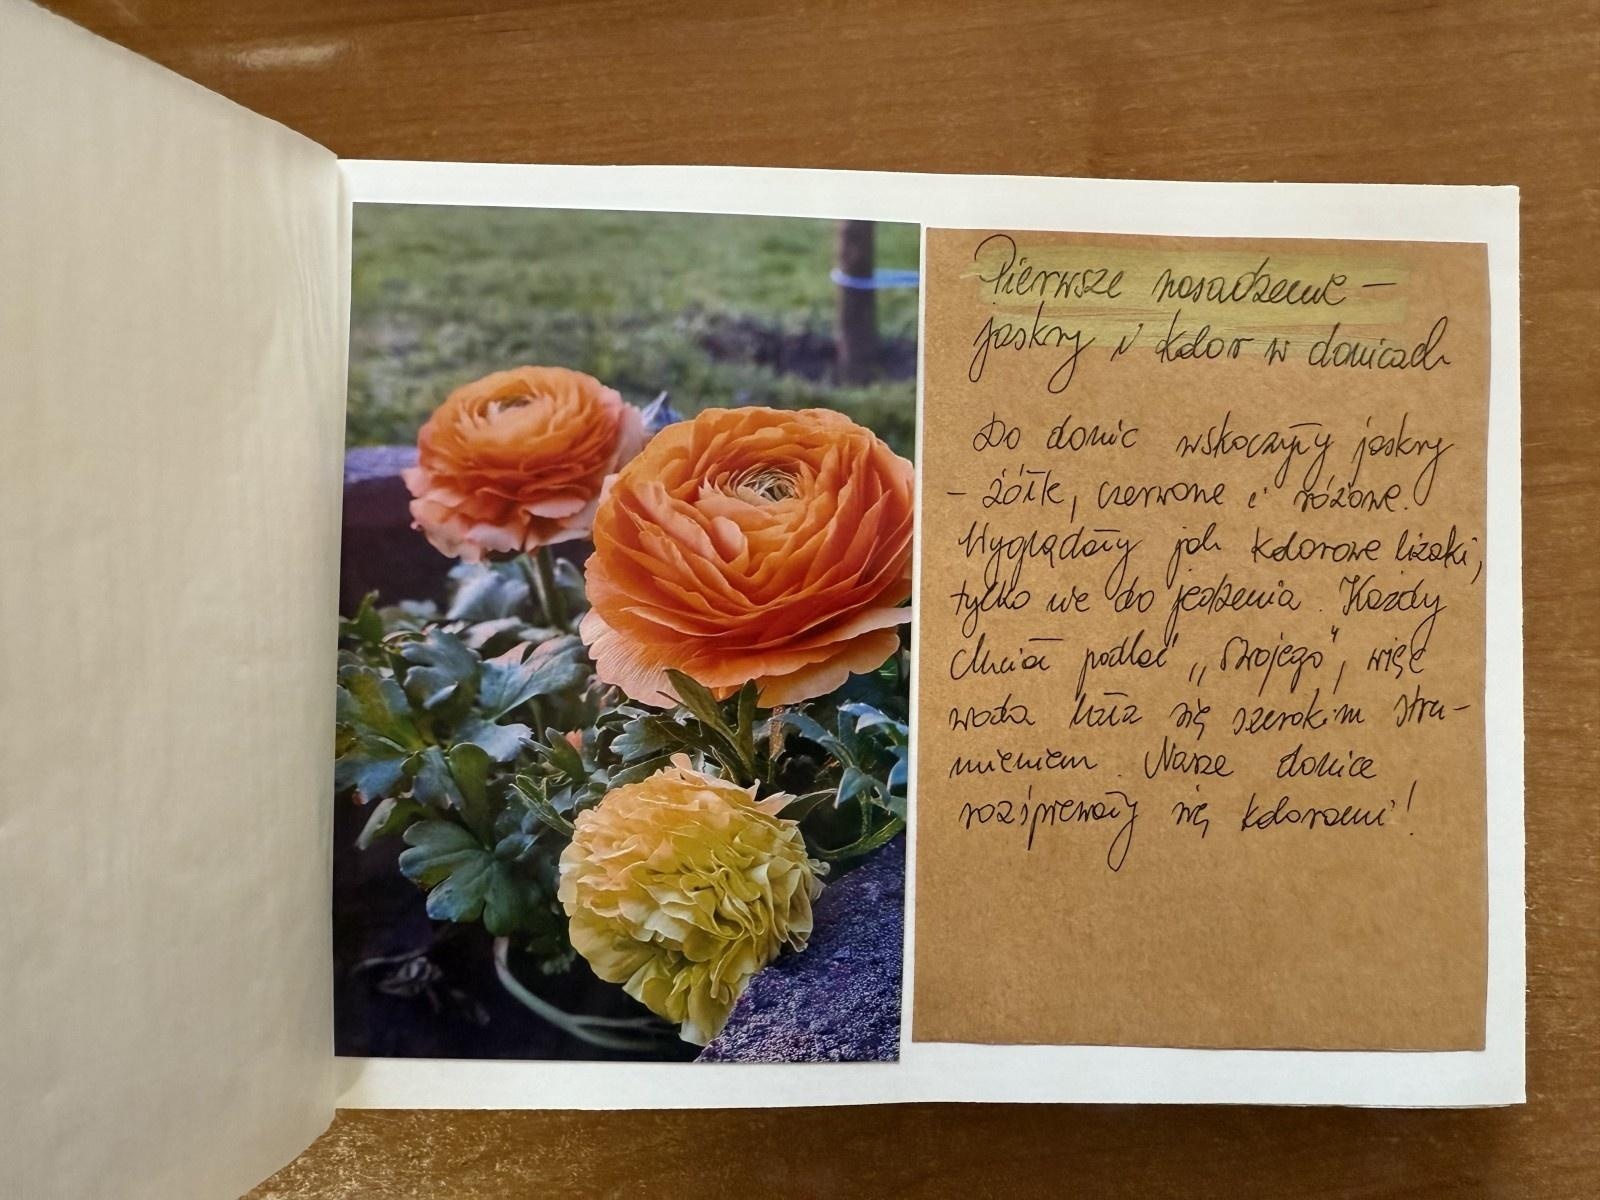 Pierwsze nasadzenie –
jaskry i kolor w donicach
Do donic wskoczyły jaskry
– żółte, czerwone i różowe.
Wyglądały jak kolorowe lizaki,
tylko nie do jedzenia. Każdy
chciał podlać „swojego”, więc
woda lała się szerokim stru-
mieniem. Nasze donice
rozśpiewały się kolorami!